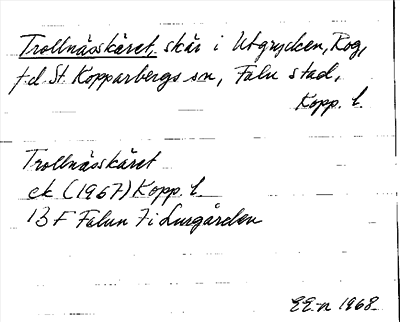 Trollnässkäret, skär i Utgrycken, Rog,
f.d. St. Kopparbergs sn, Falu stad,
Kopp. l.
Trollnässkäret
ek (1967) Kopp. l.
13 F Falun 7 i Lurgården
EE-n 1968